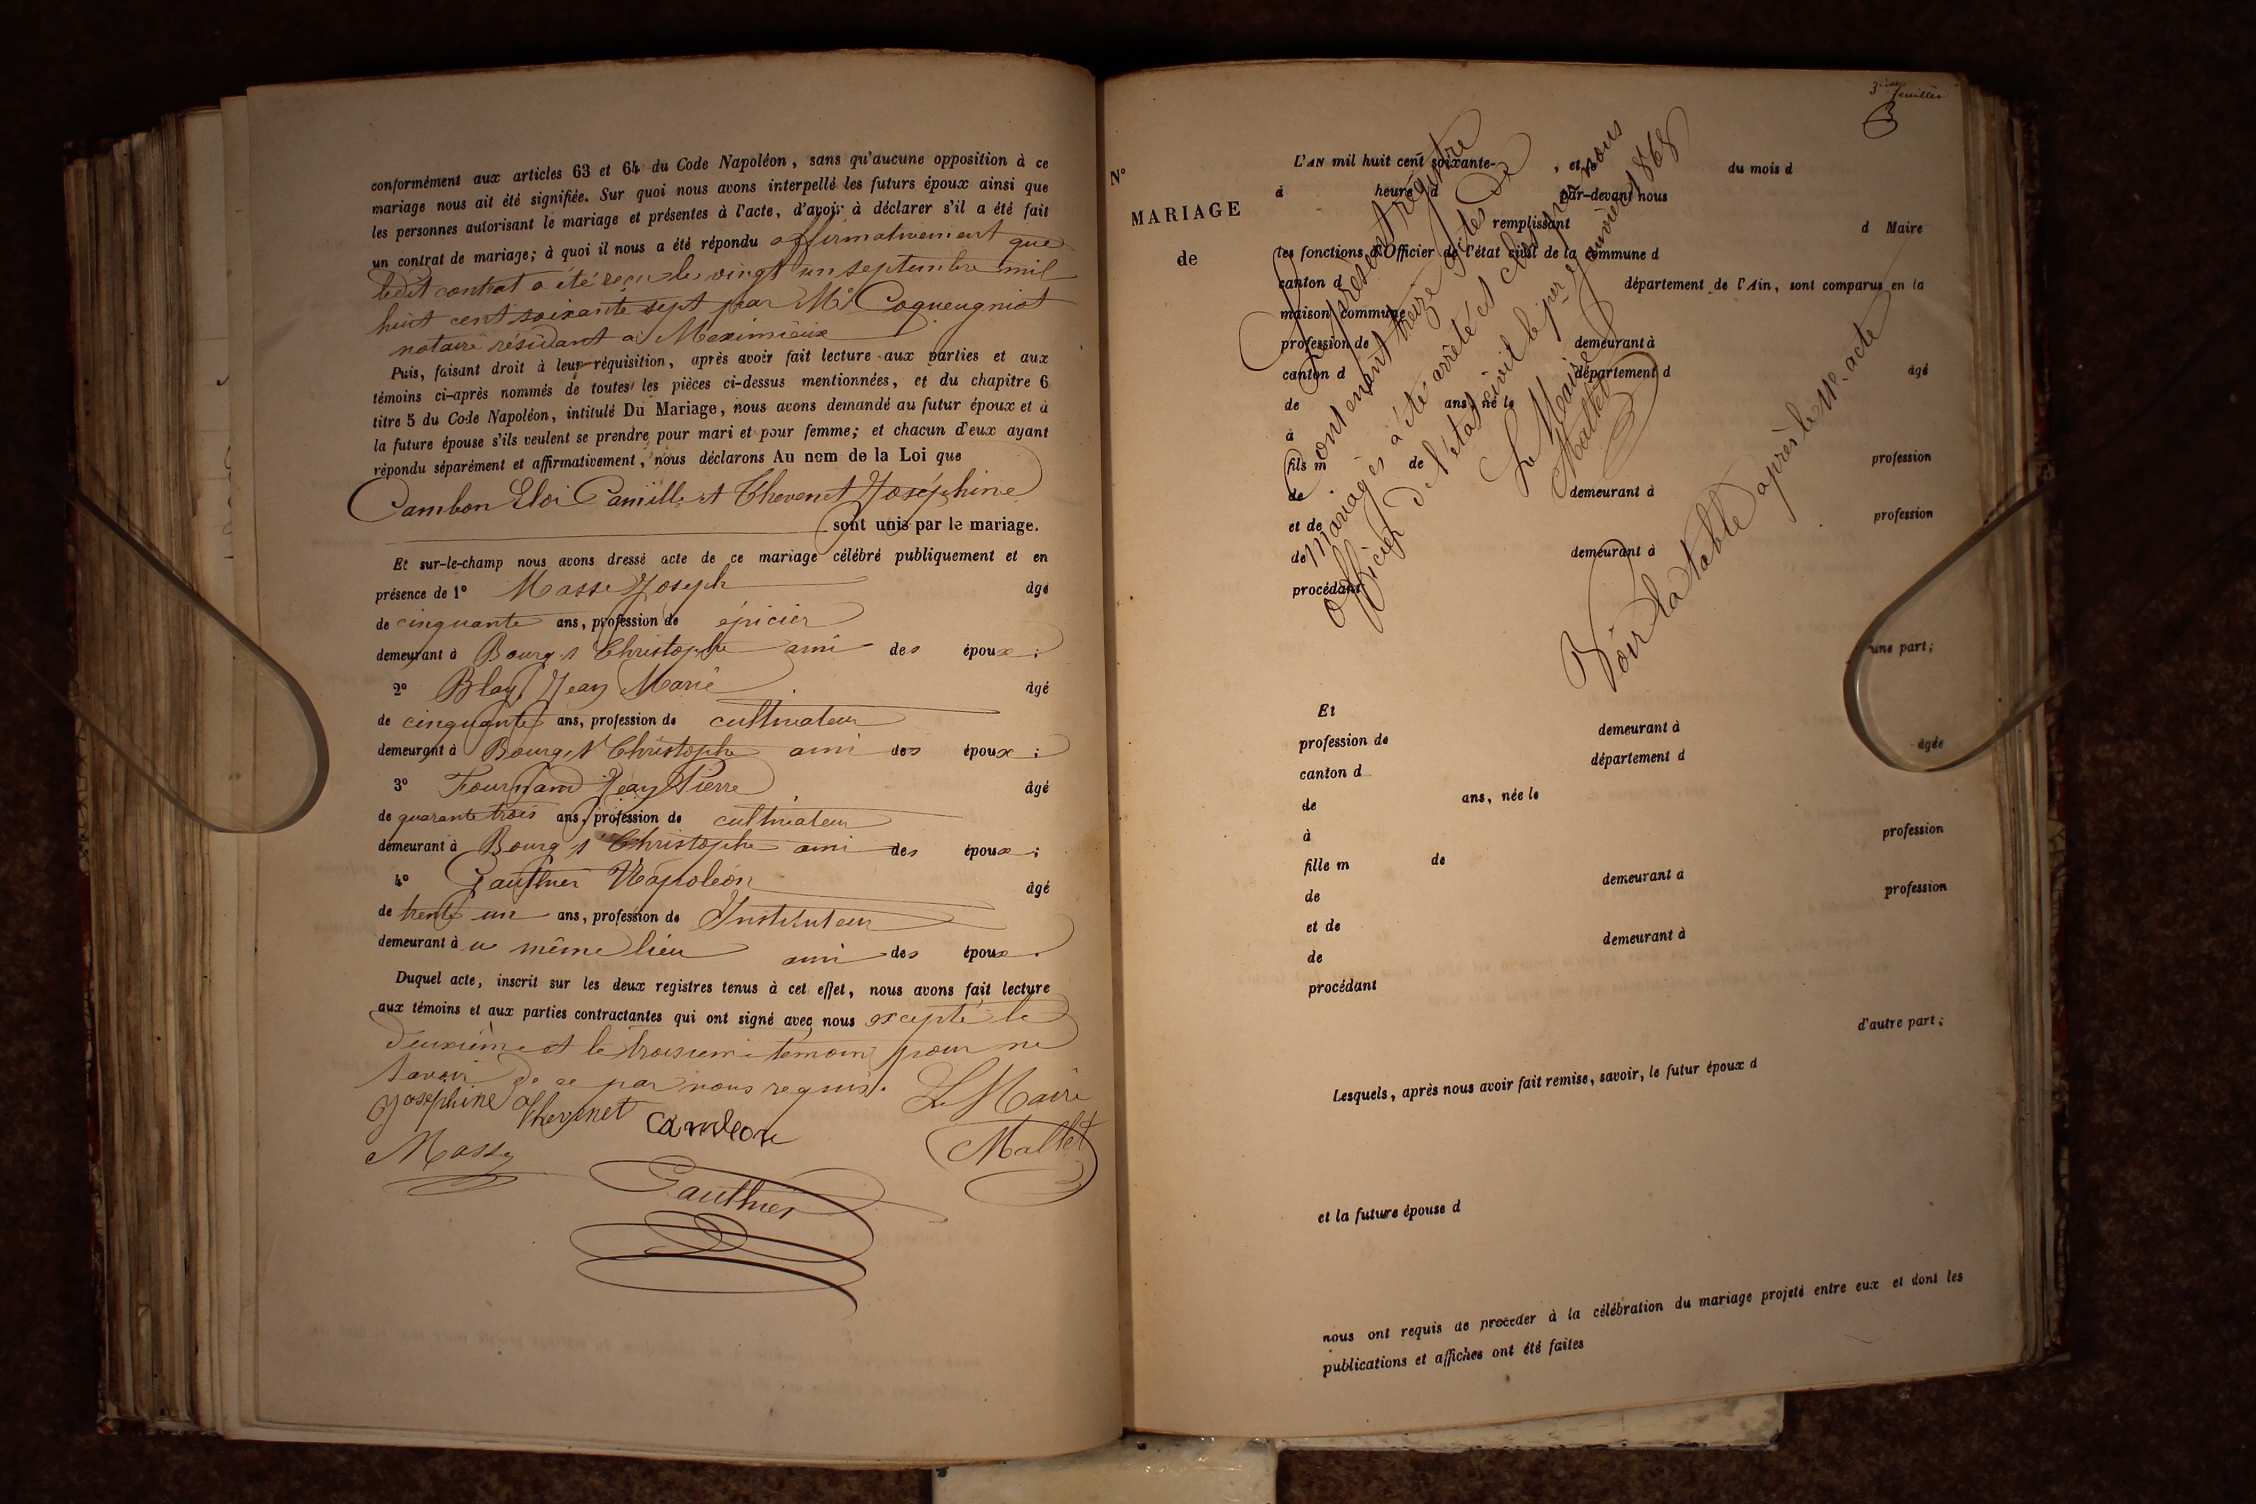 conformément aux articles 63 et 64 du Code Napoléon, sans qu'aucune opposition à ce
mariage nous ait été signifiée. Sur quoi nous avons interpellé les futurs époux ainsi que
les personnes autorisant le mariage et présentes à l'acte, d'avoir à déclarer s'il a été fait
un contrat de mariage; à quoi il nous a été répondu affirmativement que
ledit contrat a été reçu le vingt un septembre mil
huit cent soixante sept par Me Coqueugniot
notaire résidant à Meximieux
Puis, faisant droit à leur réquisition, après avoir fait lecture aux parties et aux
témoins ci-après nommés de toutes les pièces ci-dessus mentionnées, et du chapitre 6
titre 5 du Code Napoléon, intitulé Du Mariage, nous avons demandé au futur époux et à
la future épouse s'ils veulent se prendre pour mari et pour femme; et chacun d'eux ayant
répondu séparément et affirmativement, nous déclarons Au nom de la Loi que
Cambon Eloi Camille et Thevenet Joséphine
sont unis par le mariage.
Et sur-le-champ nous avons dressé acte de ce mariage célébré publiquement et en
présence de 1° Masse Joseph âgé
de cinquante ans, profession de épicier
demeurant à Bourg St Christophe ami des époux;
2° Blay Jean Marie âgé
de cinquante ans, profession de cultivateur
demeurant à Bourg St Christophe ami des époux;
3° Fournand Jean Pierre âgé
de quarante trois ans, profession de cultivateur
demeurant à Bourg St Christophe ami des époux;
4° Gauthier Napoléon âgé
de trente un ans, profession de Instituteur
demeurant à ce même lieu ami des époux.
Duquel acte, inscrit sur les deux registres tenus à cet effet, nous avons fait lecture
aux témoins et aux parties contractantes qui ont signé avec nous excepté le
deuxième et le troisième témoins pour ne
savoir de ce par nous requis.
Le Maire
Joséphine Thevenet Cambon
Masse Mallet
Gauthier
3ième feuillet
N°
MARIAGE
de
L'AN mil huit cent soixante- , et le du mois d
à heure d par-devant nous
remplissant d Maire
les fonctions d'Officier de l'état civil de la commune d
canton d département de l'Ain, sont comparus en la
maison commune
profession de demeurant à
canton d département d âgé
de ans, né le
à
fils m de profession
de demeurant à
et de profession
de demeurant à
procédant
une part;
Et
profession de demeurant à
canton d département d âgée
de ans, née le
à
fille m de profession
de demeurant à
et de profession
de demeurant à
procédant
d'autre part;
Lesquels, après nous avoir fait remise, savoir, le futur époux d
et la future épouse d
nous ont requis de procéder à la célébration du mariage projeté entre eux et dont les
publications et affiches ont été faites
Le présent registre
contenant treize actes de
mariages a été arrêté et clos par nous
officier de l'état civil le 1er janvier 1868
Le Maire
Mallet
Voir la table après le 11e acte